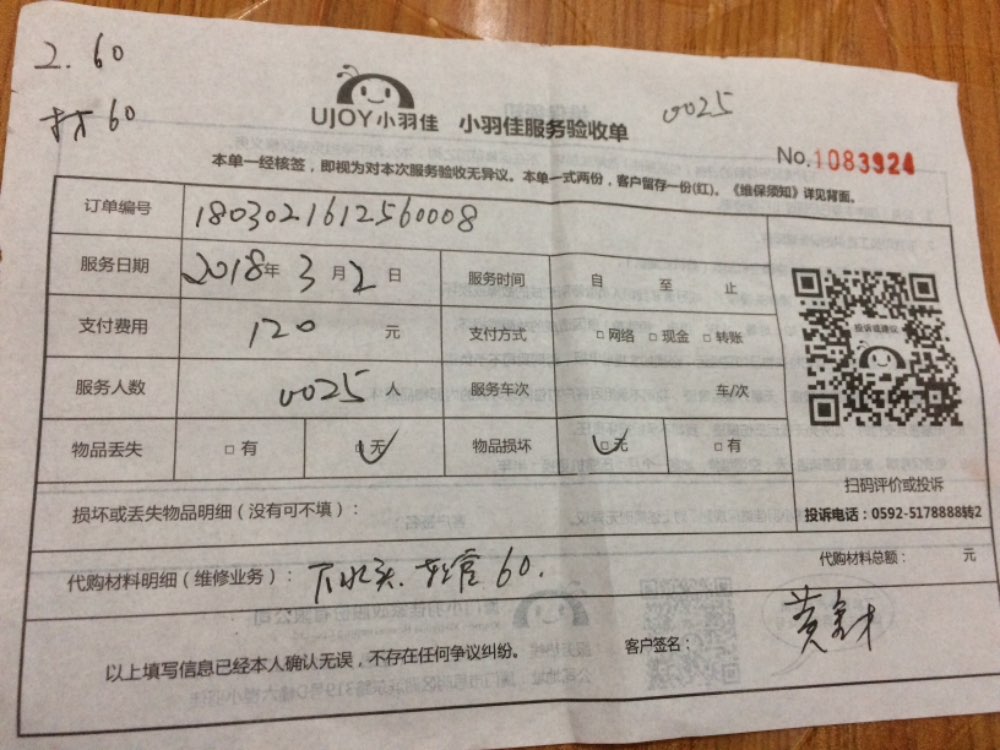 2. 60
材 60
UJOY小羽佳 小羽佳服务验收单
0025
No.1083924
本单一经核签，即视为对本次服务验收无异议。本单一式两份，客户留存一份(红)。《维保须知》详见背面。
订单编号 1803021612560008
服务日期 2018年 3月2日 服务时间 自 至 止
支付费用 120 元 支付方式 □网络 □现金 □转账
服务人数 0025人 服务车次 车/次
物品丢失 □有 □无 ✓ 物品损坏 □无 ✓ □有
投诉或建议
扫码评价或投诉
投诉电话：0592-5178888转2
损坏或丢失物品明细（没有可不填）：
代购材料明细（维修业务）：下水头. 软管 60. 代购材料总额： 元
以上填写信息已经本人确认无误，不存在任何争议纠纷。 客户签名：黄